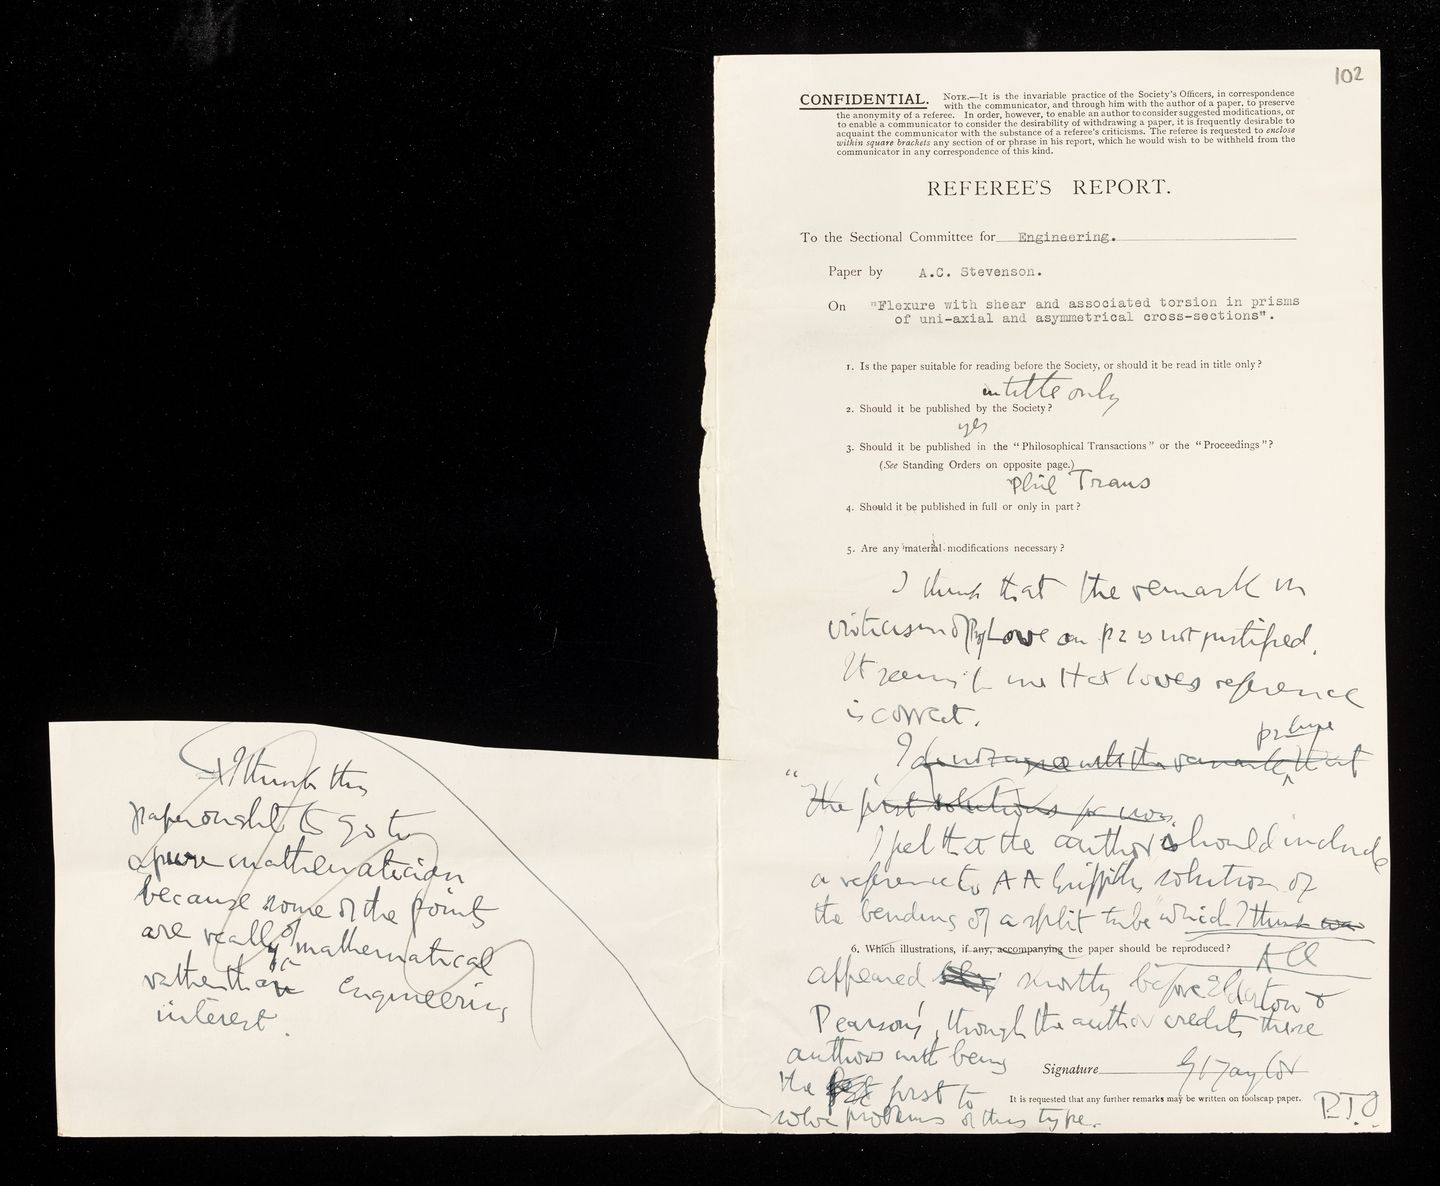 102
CONFIDENTIAL. NOTE.—It is the invariable practice of the Society's Officers, in correspondence
with the communicator, and through him with the author of a paper, to preserve
the anonymity of a referee. In order, however, to enable an author to consider suggested modifications, or
to enable a communicator to consider the desirability of withdrawing a paper, it is frequently desirable to
acquaint the communicator with the substance of a referee's criticisms. The referee is requested to enclose
within square brackets any section of or phrase in his report, which he would wish to be withheld from the
communicator in any correspondence of this kind.
REFEREE'S REPORT.
To the Sectional Committee for Engineering.
Paper by A.C. Stevenson.
On "Flexure with shear and associated torsion in prisms
of uni-axial and asymmetrical cross-sections".
1. Is the paper suitable for reading before the Society, or should it be read in title only?
in title only
2. Should it be published by the Society?
yes
3. Should it be published in the "Philosophical Transactions" or the "Proceedings"?
(See Standing Orders on opposite page.)
Phil Trans
4. Should it be published in full or only in part?
5. Are any material modifications necessary?
I think that the remark in
criticism of Love on p2 is not justified.
It seems to me that Loves reference
is correct.
p2 line
I do not agree with the remark that
"the first solutions
I feel that the author should include
a reference to A A Griffith's solution of
the bending of a split tube which I think was
6. Which illustrations, if any, accompanying the paper should be reproduced?
All
appeared shortly before Elderton &
Pearson's, though the author credits these
authors with being
the first to
solve problems of this type.
Signature G I Taylor
It is requested that any further remarks may be written on foolscap paper.
P.T.O.
I think this
paper ought to go to
a pure mathematician
because some of the points
are really of mathematical
rather than engineering
interest.